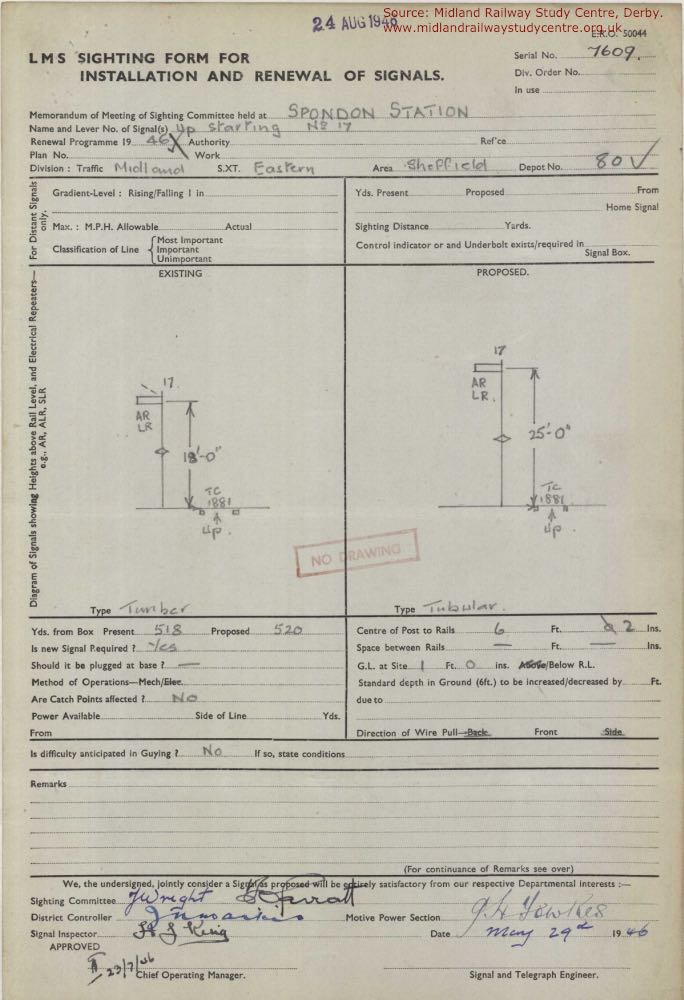 24 AUG 1946
Source: Midland Railway Study Centre, Derby.
www.midlandrailwaystudycentre.org.uk
E.R.O. 50044
LMS SIGHTING FORM FOR
INSTALLATION AND RENEWAL OF SIGNALS.
Serial No. 7609.
Div. Order No.
In use
Memorandum of Meeting of Sighting Committee held at SPONDON STATION
Name and Lever No. of Signal(s) Up Starting No 17
Renewal Programme 19 46 Authority Ref'ce
Plan No. Work
Division : Traffic Midland S.XT. Eastern Area Sheffield Depot No. 80
For Distant Signals only.
Gradient-Level : Rising/Falling 1 in
Max. : M.P.H. Allowable Actual
Classification of Line { Most Important
Important
Unimportant
Yds. Present Proposed From
Home Signal
Sighting Distance Yards.
Control indicator or and Underbolt exists/required in
Signal Box.
Diagram of Signals showing Heights above Rail Level, and Electrical Repeaters—
e.g., AR, ALR, SLR
EXISTING
17
AR
LR
18'-0"
TC
1881
Up.
Type Timber
PROPOSED.
17
AR
LR.
25'-0"
TC
1881
Up.
Type Tubular.
NO DRAWING
Yds. from Box Present 518 Proposed 520
Is new Signal Required ? Yes
Should it be plugged at base ? —
Method of Operations—Mech/Elec.
Are Catch Points affected ? No
Power Available Side of Line Yds.
From
Centre of Post to Rails 6 Ft. 2 Ins.
Space between Rails — Ft. — Ins.
G.L. at Site 1 Ft. 0 ins. Above/Below R.L.
Standard depth in Ground (6ft.) to be increased/decreased by Ft.
due to
Direction of Wire Pull—Back Front Side
Is difficulty anticipated in Guying ? No If so, state conditions
Remarks
(For continuance of Remarks see over)
We, the undersigned, jointly consider a Signal as proposed will be entirely satisfactory from our respective Departmental interests :—
Sighting Committee J Wright
District Controller
Motive Power Section
Signal Inspector
Date May 29th 1946
APPROVED
23/7/46
Chief Operating Manager.
Signal and Telegraph Engineer.